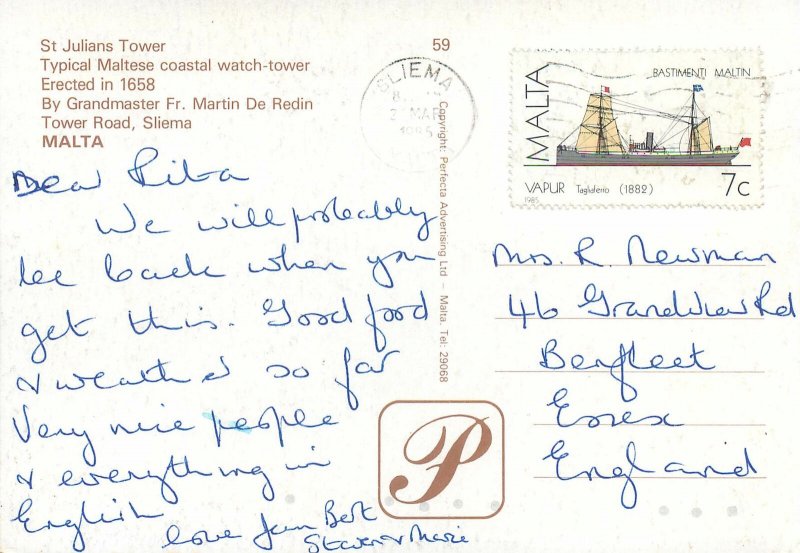 St Julians Tower
Typical Maltese coastal watch-tower
Erected in 1658
By Grandmaster Fr. Martin De Redin
Tower Road, Sliema
MALTA
59
SLIEMA
MAR
Copyright: Perfecta Advertising Ltd – Malta. Tel: 29068
MALTA
BASTIMENTI MALTIN
VAPUR Tagliaferro (1882) 7c
1985
Dear Rita
We will probably
be back when you
get this. Good food
& weather so far
Very nice people
& everything in
English
love Jean Bert
Steven & Marie
Mrs. R. Newman
46 Grandview Rd
Benfleet
Essex
England
P